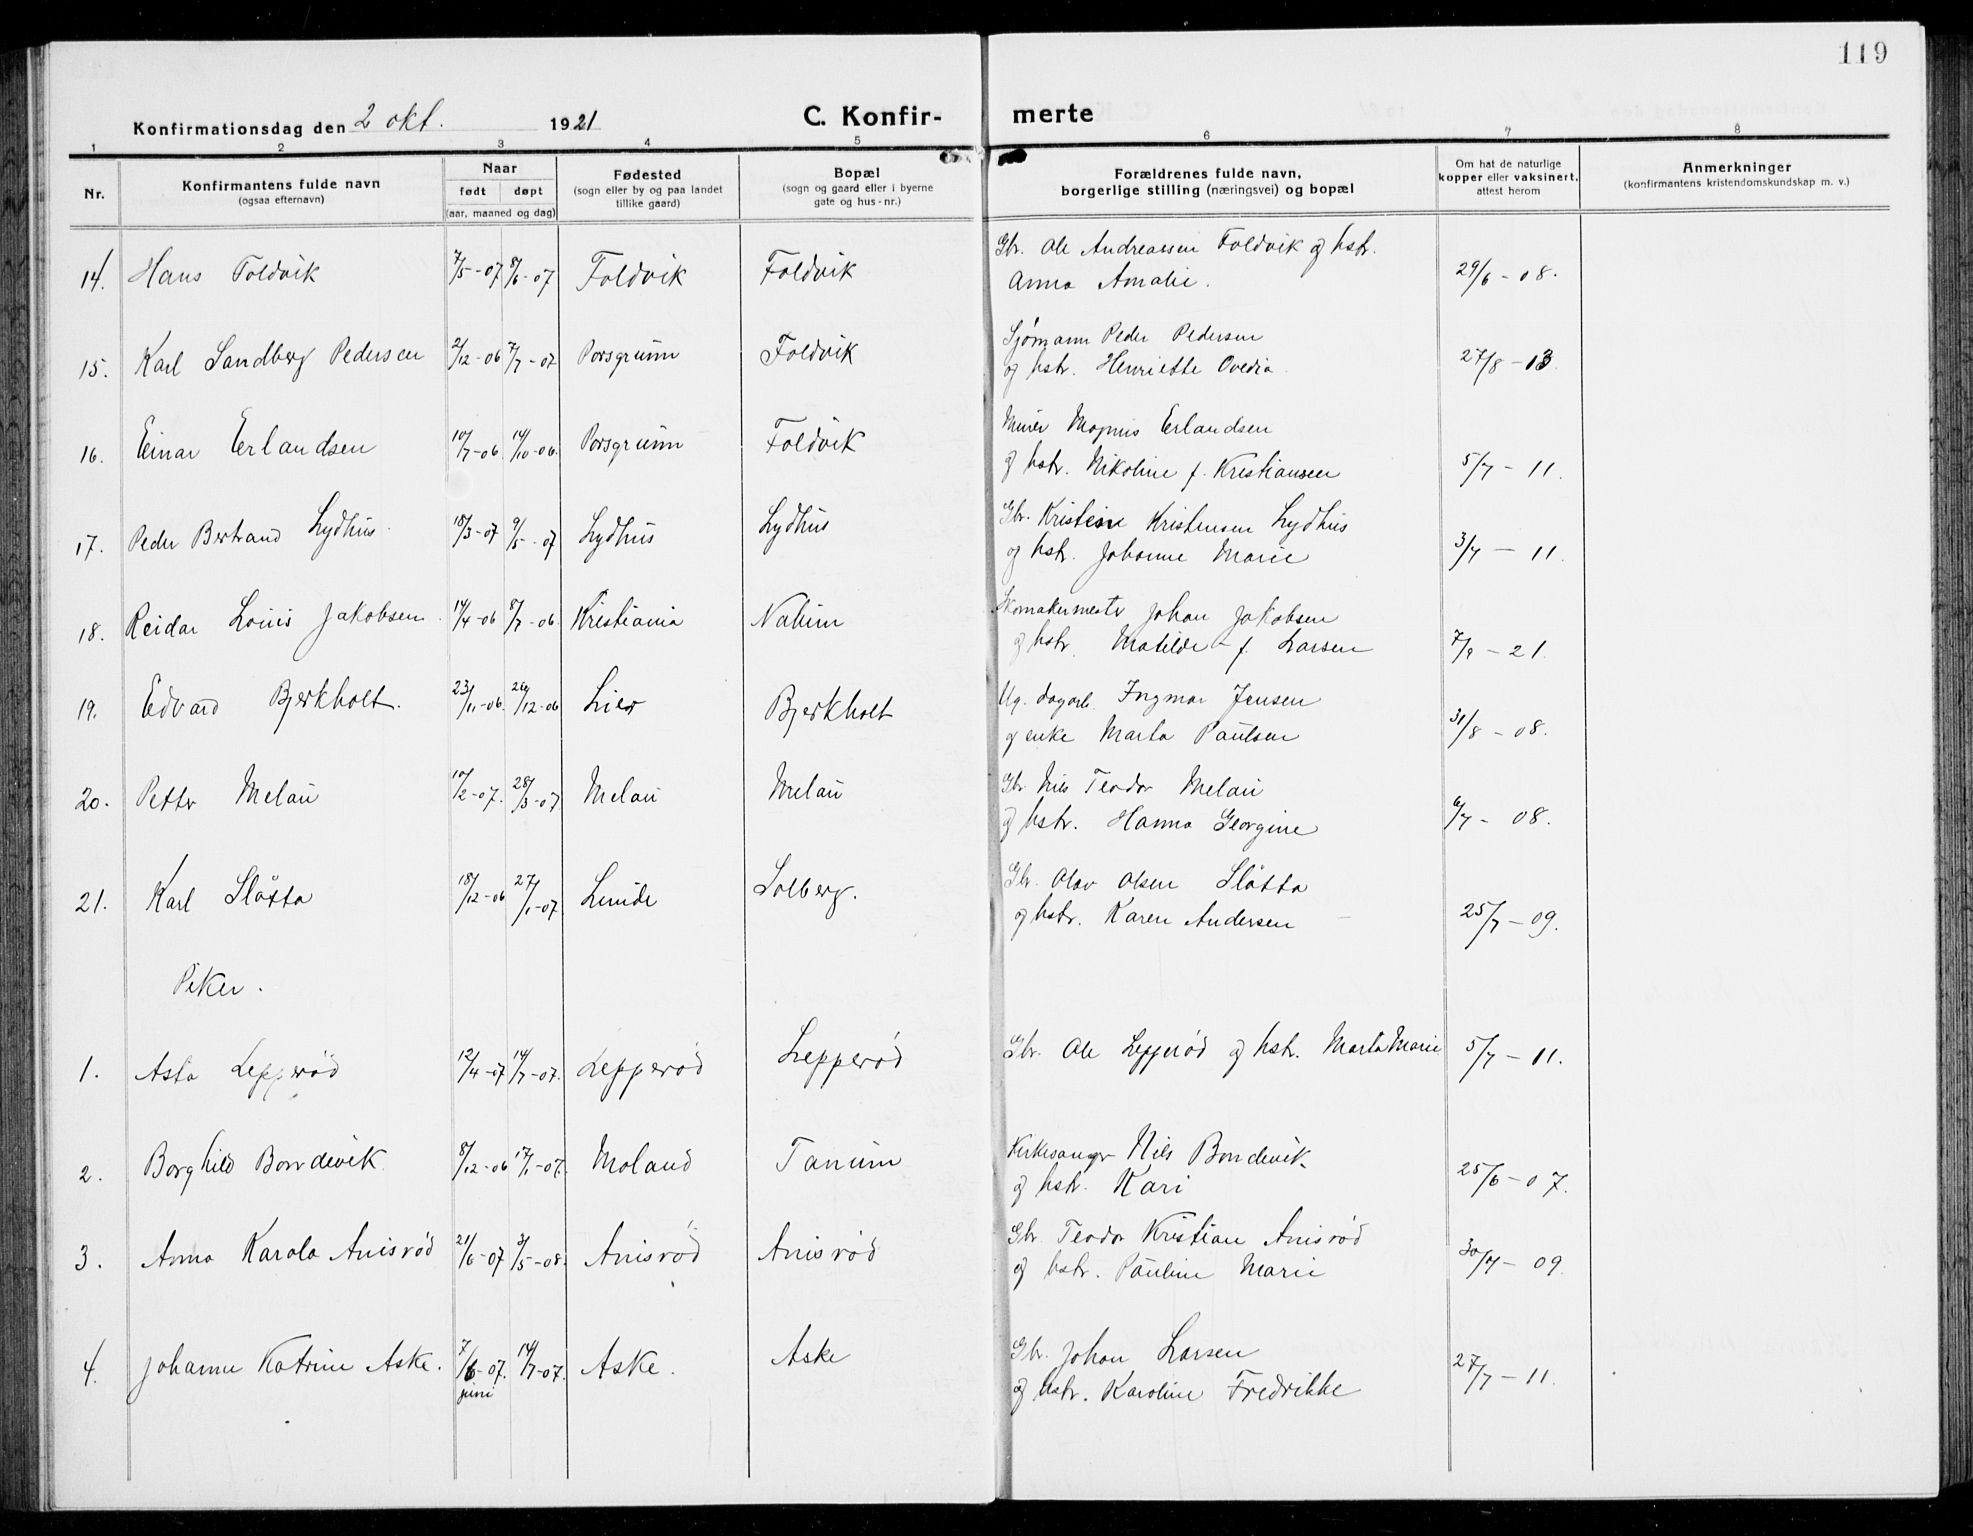 119
Konfirmationsdag den 2 okt. 1921
C. Konfir-
merte
1 2 3 4 5 6 7 8
Nr.
Konfirmantens fulde navn
(ogsaa efternavn)
Naar
født døpt
(aar, maaned og dag)
Fødested
(sogn eller by og paa landet
tillike gaard)
Bopæl
(sogn og gaard eller i byerne
gate og hus-nr.)
Forældrenes fulde navn,
borgerlige stilling (næringsvei) og bopæl
Om hat de naturlige
kopper eller vaksinert,
attest herom
Anmerkninger
(konfirmantens kristendomskundskap m. v.)
14. Hans Foldvik 7/5-07 8/6-07 Foldvik Foldvik Gbr. Ole Andreassen Foldvik og hstr.
Anna Amalie. 29/6-08.
15. Karl Sandberg Pedersen 2/12-06 7/7-07 Porsgrunn Foldvik Sjømann Peder Pedersen
og hstr. Henriette Ovedia. 27/8-13.
16. Einar Erlandsen 10/7-06. 14/10-06. Porsgrunn Foldvik Murer Magnus Erlandsen
og hstr. Nikoline f. Kristiansen 5/7-11.
17. Peder Bertrand Lydhus. 18/3-07 9/5-07 Lydhus Lydhus Gbr. Kristen Kristensen Lydhus
og hstr. Johanne Marie 3/7-11.
18. Reidar Louis Jakobsen. 14/4-06 8/7-06. Kristiania Nalum Skomakermester Johan Jakobsen
og hstr. Matilde f. Larsen 7/9-21.
19. Edvard Bjerkholt. 23/11-06. 26/12-06 Lier Bjerkholt Ug. dagarb. Ingmar Jensen
og enke Marta Paulsen 31/8-08.
20. Petter Melau 10/2-07. 28/3-07 Melau Melau Gbr. Nils Teodor Melau
og hstr. Hanna Georgine 6/7-08.
21. Karl Slåtta 18/12-06 27/1-07. Lunde Solberg. Gbr. Olav Olsen Slåtta
og hstr. Karen Andersen 25/7-09.
Piker.
1. Asta Lepperød 12/4-07 14/7-07. Lepperød Lepperød Gbr. Ole Lepperød og hstr. Marta Marie 5/7-11.
2. Borghild Bondevik 8/12-06 17/1-07. Moland Tanum Kirkesanger Nils Bondevik
og hstr. Kari 25/6-07.
3. Anna Karola Anisrød 21/6-07 3/5-08. Anisrød Anisrød Gbr. Teodor Kristian Anisrød
og hstr. Pauline Marie 30/7-09.
4. Johanne Katrine Aske. 7/6-07. 14/7-07. Aske. Aske Gbr. Johan Larsen
juni og hstr. Karoline Fredrikke 27/7-11.